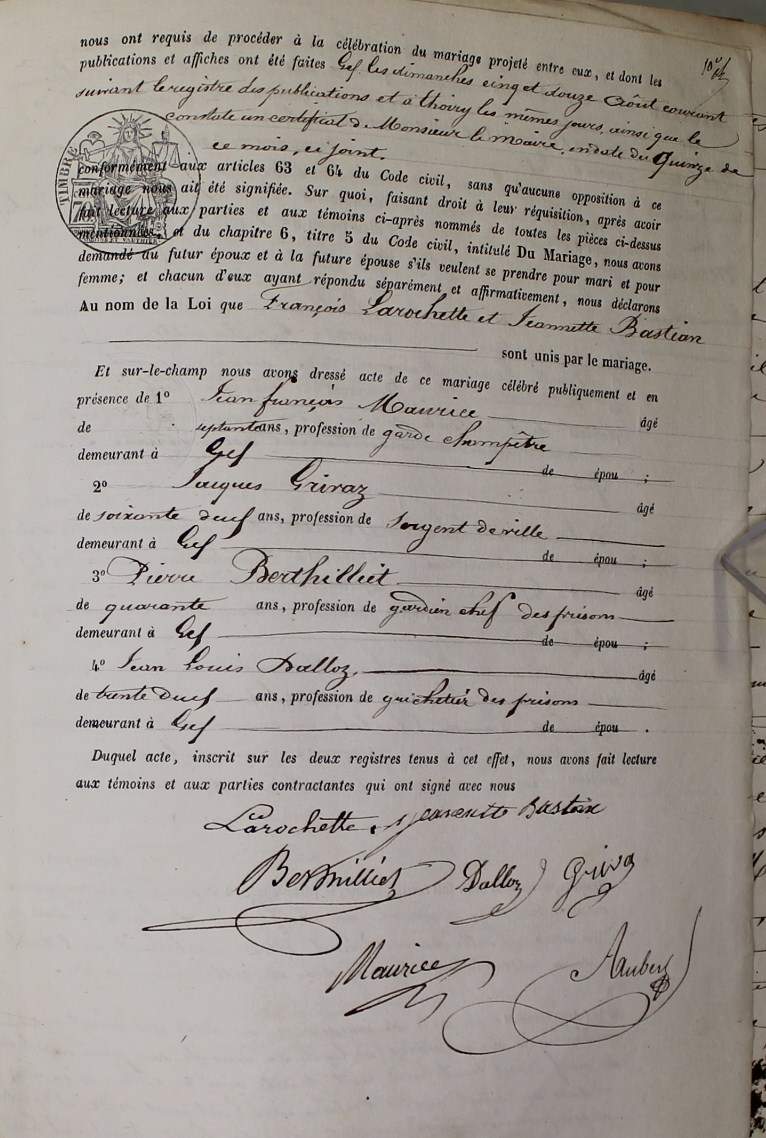 nous ont requis de procéder à la célébration du mariage projeté entre eux, et dont les
publications et affiches ont été faites Gex les dimanches cinq et douze Août courant
suivant le registre des publications et à Thoiry les mêmes jours, ainsi que le
constate un certificat de Monsieur le maire, en date du Quinze de
ce mois, ci joint.
TIMBRE
conformément aux articles 63 et 64 du Code civil, sans qu'aucune opposition à ce
mariage nous ait été signifiée. Sur quoi, faisant droit à leur réquisition, après avoir
fait lecture aux parties et aux témoins ci-après nommés de toutes les pièces ci-dessus
mentionnées, et du chapitre 6, titre 5 du Code civil, intitulé Du Mariage, nous avons
demandé au futur époux et à la future épouse s'ils veulent se prendre pour mari et pour
femme; et chacun d'eux ayant répondu séparément et affirmativement, nous déclarons
Au nom de la Loi que François Larochette et Jeannette Bastian
sont unis par le mariage.
Et sur-le-champ nous avons dressé acte de ce mariage célébré publiquement et en
présence de 1° Jean françois Maurice âgé
de septante ans, profession de garde champêtre
demeurant à Gex de épou ;
2° Jacques Grivaz âgé
de soixante deux ans, profession de sergent de ville
demeurant à Gex de épou ;
3° Pierre Berthilliet âgé
de quarante ans, profession de gardien chef des prisons
demeurant à Gex de épou ;
4° Jean Louis Dalloz, âgé
de trente deux ans, profession de guichetier des prisons
demeurant à Gex de épou .
Duquel acte, inscrit sur les deux registres tenus à cet effet, nous avons fait lecture
aux témoins et aux parties contractantes qui ont signé avec nous
Larochette Jeannette Bastian
Berthilliet Dalloz Griva
Maurice